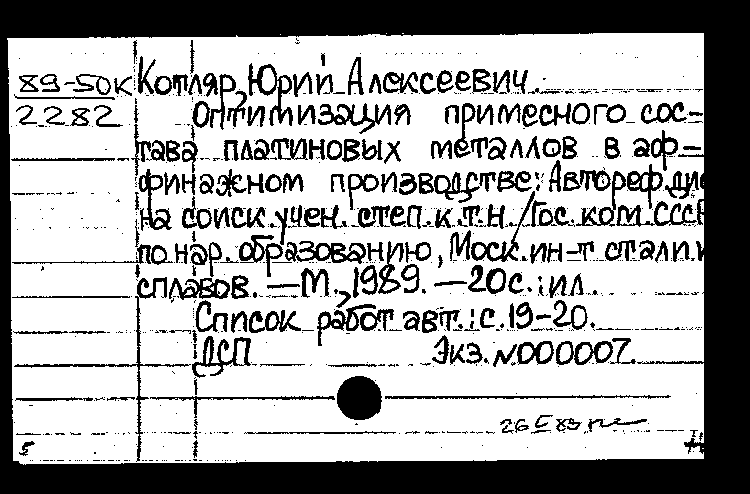 89-50К Котляр, Юрий Алексеевич.
2282 Оптимизация примесного сос-
тава платиновых металлов в аф-
финажном производстве: Автореф. дис
на соиск. учен. степ. к.т.н. / Гос. ком. СССР
по нар. образованию, Моск. ин-т стали и
сплавов. — М., 1989. — 20с.: ил.
Список работ авт.: с. 19-20.
ДСП Экз. N000007.
26 89
5